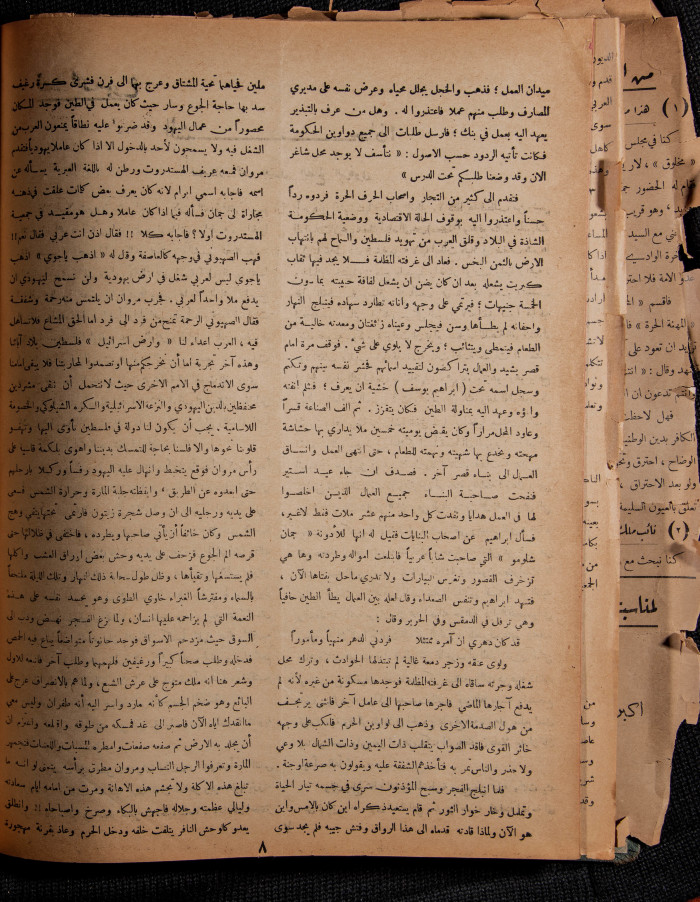 ميدان العمل ؛ فذهب والخجل يجلل محياه وعرض نفسه على مديري
المصارف وطلب منهم عملا فاعتذروا له . وهل من عرف بالتبذير
يعهد اليه بعمل في بنك ؛ فارسل طلبات الى جميع دواوين الحكومة
فكانت تأتيه الردود حسب الاصول : « نتأسف لا يوجد محل شاغر
الان وقد وضعنا طلبكم تحت الدرس »
فتقدم الى كثير من التجار واصحاب الحرف الحرة فردوه رداً
حسناً واعتذروا اليه بوقوف الحالة الاقتصادية ووضعية الحكومة
الشاذة في البلاد وقلق العرب من تهويد فلسطين والسماح لهم بانتهاب
الارض بالثمن البخس . فعاد الى غرفته المظلمة فلا يجد فيها ثقاب
كبريت يشعله بعد ان كان يضن ان يشعل لفافة حبيبته بما دون
الخمسة جنيهات ؛ فيرتمي على وجهه واناته تطارد سهاده فينبلج النهار
واجفانه لم يطأها وسن فيجلس وعيناه زائغتان ومعدته خالية من
الطعام فيتمطى ويتثائب ؛ ويخرج لا يلوي على شيء . فوقف مرة امام
قصر يشيد والعمال يتراكضون لتقييد اسمائهم فحشر نفسه بينهم وتكتم
وسجل اسمه تحت ( ابراهيم يوسف ) خشية ان يعرف ؛ فشم انفته
واؤه وعهد اليه بمناولة الطين فكان يتقزز . ثم الف الصناعة قسراً
وعاود المحل مراراً وكان يقبض يوميته خمسين ملا يداري بها حشاشة
مهجته ويخدع بها شهيته ونهمته للطعام ، حتى انتهى العمل وانساق
العمال الى بناء قصر آخر . فصدف ان جاء عيد استير
فنفحت صاحبة البناء جميع العمال الذين اخلصوا
لها في العمل هدايا ونقدت كل واحد منهم عشر ملات فقط لاغير،
فسأل ابراهيم عن اصحاب البنايات فقيل له انها للآدونة « جمان
شلومو » التي صاحبت شاباً عربياً فابتلعت امواله وطردته وها هي
تزخرف القصور وتغرس البيارات ولا تدري ماحل بفتاها الآن ،
فتنهد ابراهيم وتنفس الصعداء وقال لعله بين العمال يطأ الطين حافياً
وهي ترفل في الدمقس وفي الحرير وقال :
قد كان دهري ان آمره ممتثلا فردني الدهر منهياً ومأموراً
ولوى عنقه وزجر دمعة غالية لم تبتذلها الحوادث ، وترك محل
شغله وجرته ساقاه الى غرفته المظلمة فوجدها مسكونة من غيره لأنه لم
يدفع آجارها الماضي فاجرها صاحبها الى عامل آخر فانثنى يرتجف
من هول الصدمة الاخرى وذهب الى لواوين الحرم فانكب على وجهه
خائر القوى فاقد الصواب يتقلب ذات اليمين وذات الشمال بلا وعي
ولا حذر والناس تمر به فتأخذهم الشفقة عليه ويقولون به صرعة اوجنة .
فلما انبلج الفجر وسبح المؤذنون ، سرى في جسمه تيار الحياة
وتململ وخار خوار الثور ثم قام يستعيد ذكراه اين كان بالامس واين
هو الآن ولماذا قادته قدماه الى هذا الرواق وفتش جيبه فلم يجد سوى
ملين فحياهما تحية المشتاق وعرج بهما الى فرن فشرى كسرة رغيف
سد بها حاجة الجوع وسار حيث كان يعمل في الطين فوجد المكان
محصوراً من عمال اليهود وقد ضربوا عليه نطاقاً يمنعون العرب من
الشغل فيه ولا يسمحون لأحد بالدخول الا اذا كان عاملا يهودياً فتقدم
مروان فمنعه عريف المستدروت ورطن له باللغة العبرية يسأله عن
اسمه فاجابه اسمي ابرام لانه كان يعرف بعض كلمات علقت في ذهنه
مجاراة لى جمان فسأله فيما اذا كان عاملا وهل هو مقيد في جمعية
المستدروت اولا ؟ فأجابه كلا !! فقال اذن انت عربي فقال نعم !!
فهب الصهيوني في وجهه كالعاصفة وقال له « اذهب ياجوي » اذهب
ياجوي ليس لعربي شغل في ارض يهودية ولن نسمح ليهودي ان
يدفع ملا واحداً لعربي . فجرب مروان ان يلتمس منه رحمة وشفقة
فقال الصهيوني الرحمة تمنح من فرد الى فرد اما الحق المشاع فلا تساهل
فيه ، العرب اعداء لنا « وارض اسرائيل » فلسطين بلاد آبائنا
وهذه آخر تجربة اما أن نخرجكم منها او تصمدوا لمحاربتنا فلا يبقى امامنا
سوى الاندماج في الامم الاخرى حيث لا نتحمل أن نبقى مشردين
محتفظين بالدين اليهودي والنزعة الاسرائيلية والسكره الشيلوكي والخصومة
اللاسامية . يجب أن يكون لنا دولة في فلسطين نأوى اليها وتهفو
قلوبنا نحوها والا فلسنا بحاجة للتمسك بديننا وأهوى بلكمة قاسية على
رأس مروان فوقع يتخبط وانهال عليه اليهود رفساً وركلا بارجلهم
حتى ابعدوه عن الطريق ؛ وايقظته جلبة المارة وحرارة الشمس فسعى
على يديه ورجليه الى ان وصل شجرة زيتون فارتمى تحتها يتقي وهج
الشمس وكان خائفاً أن يأتي صاحبها ويطرده ، فاختفى في ظلالها حتى
قرصه ألم الجوع فزحف على يديه وحش بعض اوراق العشب واكلها
فلم يستسغها وتقيأها ، وظل طول سحابة ذلك النهار وتلك الليلة ملتحفاً
بالسماء ومفترشاً الغبراء خاوي الطوى وهو يحسد نفسه على هذه
النعمة التي لم يزاحمه عليها انسان ، ولما بزغ الفجر نهض ودب الى
السوق حيث مزدحم الاسواق فوجد حانوتاً متواضعاً يباع فيه الحمص
فدخله وطلب صحناً كبيراً ورغيفين فلهمهما وطلب آخر فاتبعه للاول
وشعر هنا انه ملك متوج على عرش الشبع ، ولما هم بالانصراف عرج على
البائع وهو ضخم الجسم كأنه مارد واسر اليه أنه طفران وليس معي
ما انقدك اياه الآن فاصبر الى غد فمسكه من طوقه واقلعه واعتزم ان
أن يجلد به الارض ثم صفعه صفعات وامطره بالسباب واللعنات فتجمهر
المارة وتعرفوا الرجل الشاب ومروان مطرق برأسه يتمنى لو انه ما
تبلغ هذه الاكلة ولا تجشم هذه الاهانة ومرت من امامه ايام سعادته
وليالي عظمته وجلاله فاجهش بالبكاء وصرخ واصباحاه !! وانطلق
يعدو كاوحش النافر يتلفت خلفه ودخل الحرم وعاذ بغرنة مهجورة
٨